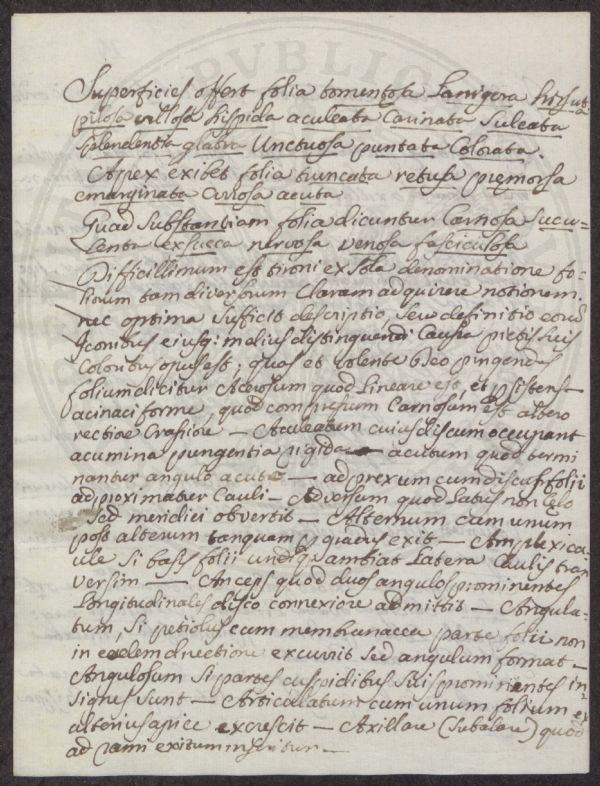 Superficies offert folia tomentosa Lanigera hirsuta
pilosa villosa hispida aculeata Carinata Sulcata
splendentia glabra Unctuosa puntata Colorata.
Apex exibet folia truncata retusa præmorsa
emarginata Cirrosa acuta
Quad Substantiam folia dicuntur Carnosa Succu-
lenta exsucca nervosa venosa fasciculosa
Difficillimum est tironi ex Sola denominatione fo-
liorum tam diversum Claram adquirere notionem.
nec optima sufficit descriptio, seu definitio
Iconibus ejusq: melius distinguendi Causa pictis suis
Coloribus opus est; quas et volente Deo pingendas
folium dicitur Acerosum quod Lineare est, et persistens —
acinaci forme, quod compressum Carnosum est altero
rectiore Crassiore — Aculeatum cuius discum occupant
acumina pungentia rigida — acutum quod termi
nantur angulo acuto — adprexum cum discus folii
adproximatur Cauli — Adversum quod latus non
Sed meridiei obvertit — Alternum cum unum
post alterum tanquam gradus exit — Amplexica-
ule si basis folii undiq: ambiat Latera Caulis tra
versim — Anceps quod duos angulos prominentes
Longitudinales disco connexiore admittit — Angula-
tum, si petiolus cum membranacea parte folii non
in eadem directione excurrit sed angulum format —
Angulosum si partes cuspidibus suis prominentes in
signes sunt — Articulatum cum unum folium ex
alterius apice excrescit — Axillare (Subalare) quod
ad rami exitum inseritur. —
PUBLIC